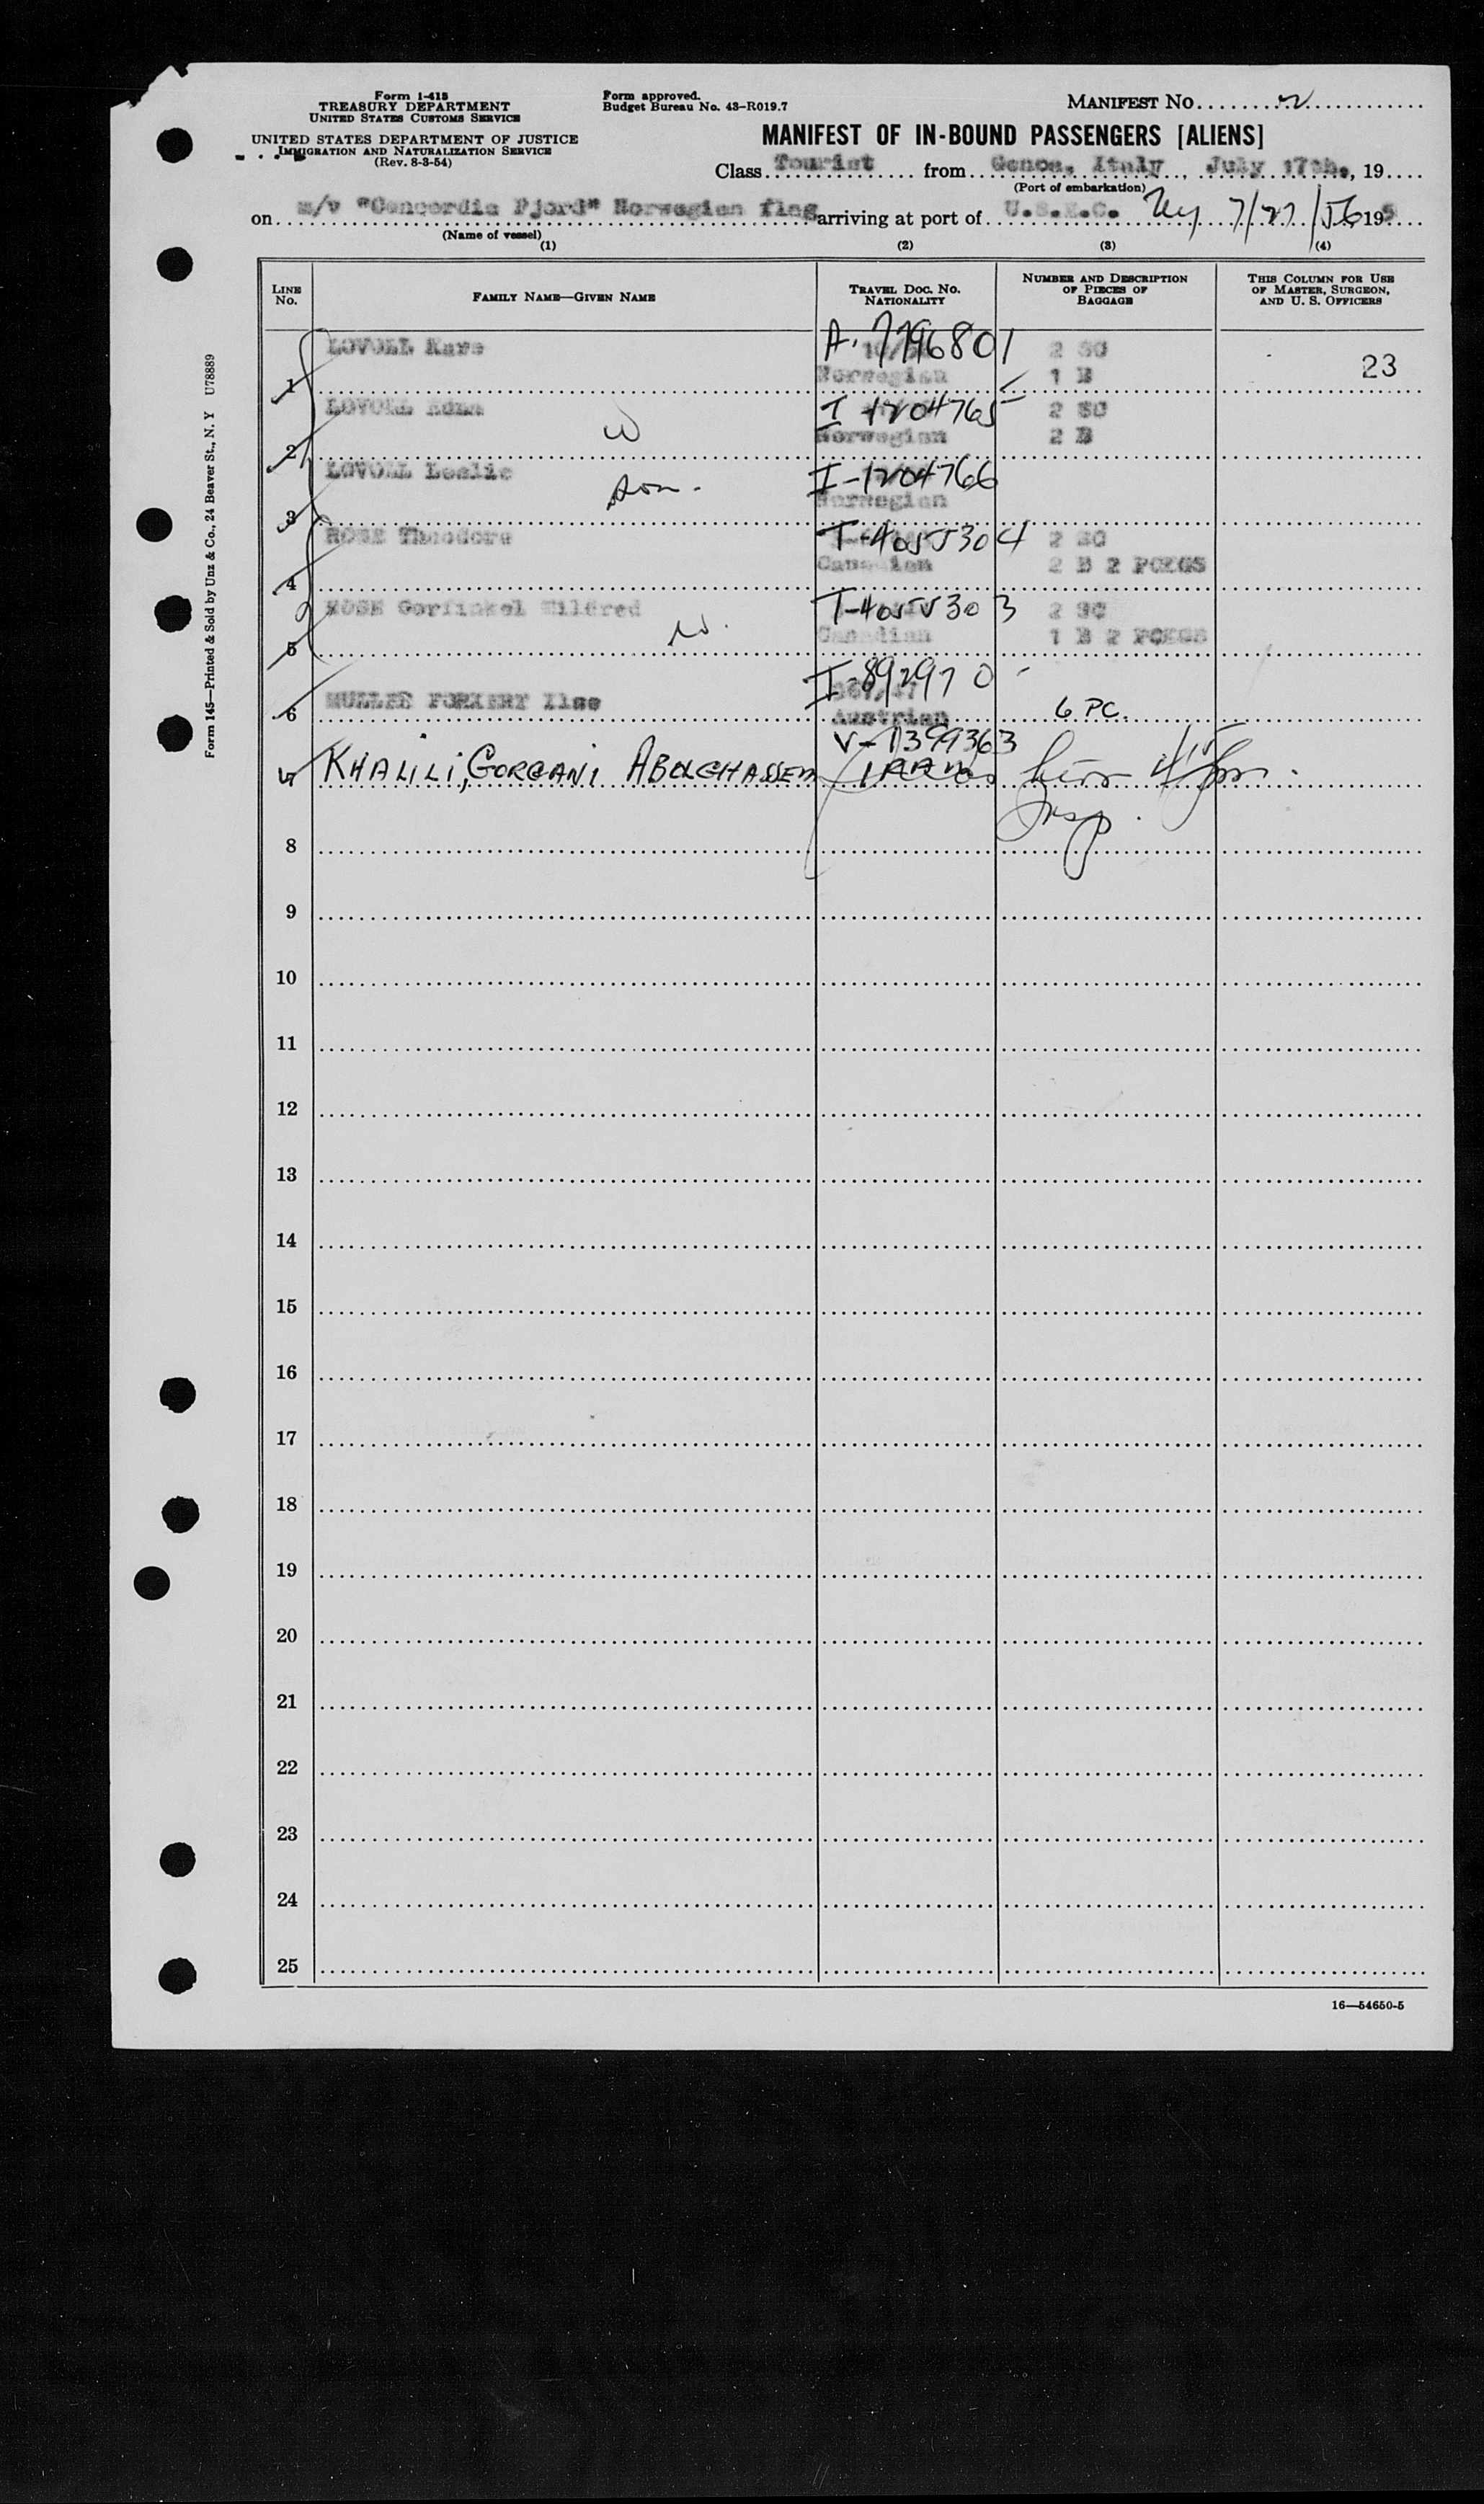 Form I-415
TREASURY DEPARTMENT
UNITED STATES CUSTOMS SERVICE
UNITED STATES DEPARTMENT OF JUSTICE
IMMIGRATION AND NATURALIZATION SERVICE
(Rev. 8-3-54)
Form approved.
Budget Bureau No. 43-R019.7
MANIFEST NO. 2
MANIFEST OF IN-BOUND PASSENGERS [ALIENS]
Class Tourist from Genoa, Italy, July 17th., 19
(Port of embarkation)
on m/v "Concordia Fjord" Norwegian flag arriving at port of U.S.E.C. NY 7/27/56 195
(Name of vessel)
(1) (2) (3) (4)
LINE NO.
FAMILY NAME—GIVEN NAME
TRAVEL DOC. NO. NATIONALITY
NUMBER AND DESCRIPTION OF PIECES OF BAGGAGE
THIS COLUMN FOR USE OF MASTER, SURGEON, AND U. S. OFFICERS
LOVOLL Kare A. 7796801 2 SC
1 Norwegian 1 B 23
LOVOLL Edna I-1204765 2 SC
2 W Norwegian 2 B
LOVOLL Leslie I-1204766
3 son. Norwegian
ROSE Theodore T-4055304 2 SC
4 Canadian 2 B 2 PCKGS
ROSE Gorfinkel Mildred T-4055303 2 SC
5 W. Canadian 1 B 2 PCKGS
I-892970
6 MULLER FORKERT Ilse Austrian 6 PC.
V-1399363
7 KHALILI, GORGANI ABOLGHASSEM IRAN
Insp.
8
9
10
11
12
13
14
15
16
17
18
19
20
21
22
23
24
25
16—54650-5
Form 145—Printed & Sold by Unz & Co., 24 Beaver St., N. Y U78889